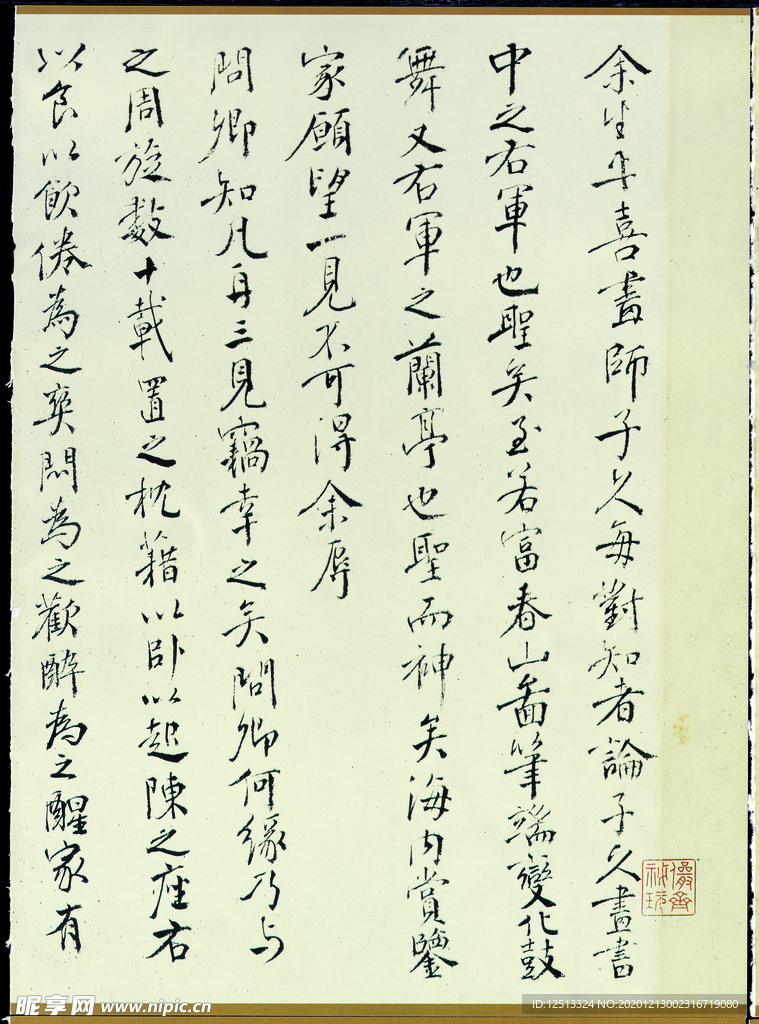 余生平喜畫師子久每對知者論子久畫書
中之右軍也聖矣至若富春山圖筆端變化鼓
舞又右軍之蘭亭也聖而神矣海内賞鑒
家願望一見不可得余辱
問卿知凡再三見竊幸之矣問卿何緣乃与
之周旋數十載置之枕藉以卧以起陳之座右
以食以飲倦為之爽悶為之歡醉為之醒家有
昵享网 www.nipic.cn
ID:12513324 NO:20201213002316719080